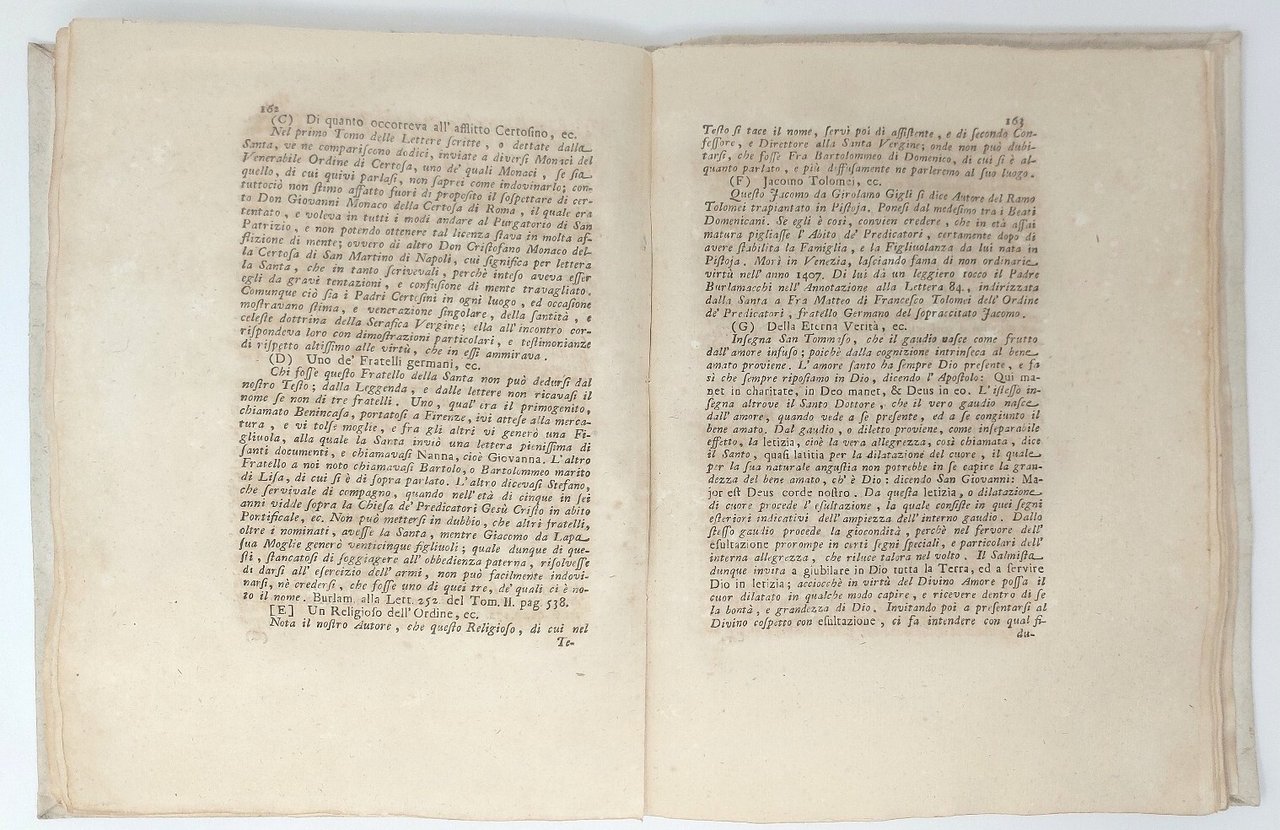 162
(C) Di quanto occorreva all' afflitto Certosino, ec.
Nel primo Tomo delle Lettere ſcritte, o dettate dalla
Santa, ve ne compariſcono dodici, inviate a diverſi Monaci del
Venerabile Ordine di Certoſa, uno de' quali Monaci, ſe ſia
quello, di cui quivi parlaſi, non ſaprei come indovinarlo; con-
tuttociò non ſtimo affatto fuori di propoſito il ſoſpettare di cer-
to Don Giovanni Monaco della Certoſa di Roma, il quale era
tentato, e voleva in tutti i modi andare al Purgatorio di San
Patrizio, e non potendo ottenere tal licenza ſtava in molta af-
flizione di mente; ovvero di altro Don Criſtofano Monaco del-
la Certoſa di San Martino di Napoli, cui ſignifica per lettera
la Santa, che in tanto ſcrivevali, perchè inteſo aveva eſſer
egli da gravi tentazioni, e confuſione di mente travagliato.
Comunque ciò ſia i Padri Certoſini in ogni luogo, ed occaſione
moſtravano ſtima, e venerazione ſingolare, della ſantità, e
celeſte dottrina della Serafica Vergine; ella all'incontro cor-
riſpondeva loro con dimoſtrazioni particolari, e teſtimonianze
di riſpetto altiſſimo alle virtù, che in eſſi ammirava.
(D) Uno de' Fratelli germani, ec.
Chi foſſe queſto Fratello della Santa non può dedurſi dal
noſtro Teſto; dalla Leggenda, e dalle lettere non ricavaſi il
nome ſe non di tre fratelli. Uno, qual'era il primogenito,
chiamato Benincaſa, portatoſi a Firenze, ivi atteſe alla merca-
tura, e vi tolſe moglie, e fra gli altri vi generò una Fi-
gliuola, alla quale la Santa inviò una lettera pieniſſima di
ſanti documenti, e chiamavaſi Nanna, cioè Giovanna. L'altro
Fratello a noi noto chiamavaſi Bartolo, o Bartolommeo marito
di Liſa, di cui ſi è di ſopra parlato. L'altro dicevaſi Stefano,
che ſervivale di compagno, quando nell'età di cinque in ſei
anni vidde ſopra la Chieſa de' Predicatori Gesù Criſto in abito
Pontificale, ec. Non può metterſi in dubbio, che altri fratelli,
oltre i nominati, aveſſe la Santa, mentre Giacomo da Lapa
ſua Moglie generò venticinque figliuoli; quale dunque di que-
ſti, ſtancatoſi di ſoggiagere all' obbedienza paterna, riſolveſſe
di darſi all' eſercizio dell' armi, non può facilmente indovi-
narſi, nè crederſi, che foſſe uno di quei tre, de' quali ci è no-
to il nome. Burlam. alla Lett. 252. del Tom. II. pag. 538.
[E] Un Religioſo dell'Ordine, ec.
Nota il noſtro Autore, che queſto Religioſo, di cui nel
Te-
163
Teſto ſi tace il nome, ſervì poi di aſſiſtente, e di ſecondo Con-
feſſore, e Direttore alla Santa Vergine; onde non può dubi-
tarſi, che foſſe Fra Bartolommeo di Domenico, di cui ſi è al-
quanto parlato, e più diffuſamente ne parleremo al ſuo luogo.
(F) Jacomo Tolomei, ec.
Queſto Jacomo da Girolamo Gigli ſi dice Autore del Ramo
Tolomei trapiantato in Piſtoja. Poneſi dal medeſimo tra i Beati
Domenicani. Se egli è così, convien credere, che in età aſſai
matura pigliaſſe l' Abito de' Predicatori, certamente dopo di
avere ſtabilita la Famiglia, e la Figliuolanza da lui nata in
Piſtoja. Morì in Venezia, laſciando fama di non ordinarie
virtù nell' anno 1407. Di lui dà un leggiero tocco il Padre
Burlamacchi nell' Annotazione alla Lettera 84., indirizzata
dalla Santa a Fra Matteo di Franceſco Tolomei dell' Ordine
de' Predicatori, fratello Germano del ſopraccitato Jacomo.
(G) Della Eterna Verità, ec.
Inſegna San Tommaſo, che il gaudio naſce come frutto
dall'amore infuſo; poichè dalla cognizione intrinſeca al bene
amato proviene. L'amore ſanto ha ſempre Dio preſente, e fa
sì che ſempre ripoſiamo in Dio, dicendo l' Apoſtolo: Qui ma-
net in charitate, in Deo manet, & Deus in eo. L'iſteſſo in-
ſegna altrove il Santo Dottore, che il vero gaudio naſce
dall'amore, quando vede a ſe preſente, ed a ſe congiunto il
bene amato. Dal gaudio, o diletto proviene, come inſeparabile
effetto, la letizia, cioè la vera allegrezza, così chiamata, dice
il Santo, quaſi latitia per la dilatazione del cuore, il quale
per la ſua naturale anguſtia non potrebbe in ſe capire la gran-
dezza del bene amato, ch' è Dio: dicendo San Giovanni: Ma-
jor eſt Deus corde noſtro. Da queſta letizia, o dilatazione
di cuore procede l' eſultazione, la quale conſiſte in quei ſegni
eſteriori indicativi dell'ampiezza dell'interno gaudio. Dallo
ſteſſo gaudio procede la giocondità, perchè nel fervore dell'
eſultazione prorompe in certi ſegni ſpeciali, e particolari dell'
interna allegrezza, che riluce talora nel volto. Il Salmiſta
dunque invita a giubilare in Dio tutta la Terra, ed a ſervire
Dio in letizia; acciocchè in virtù del Divino Amore poſſa il
cuor dilatato in qualche modo capire, e ricevere dentro di ſe
la bontà, e grandezza di Dio. Invitando poi a preſentarſi al
Divino coſpetto con eſultazione, ci fa intendere con qual fi-
du-